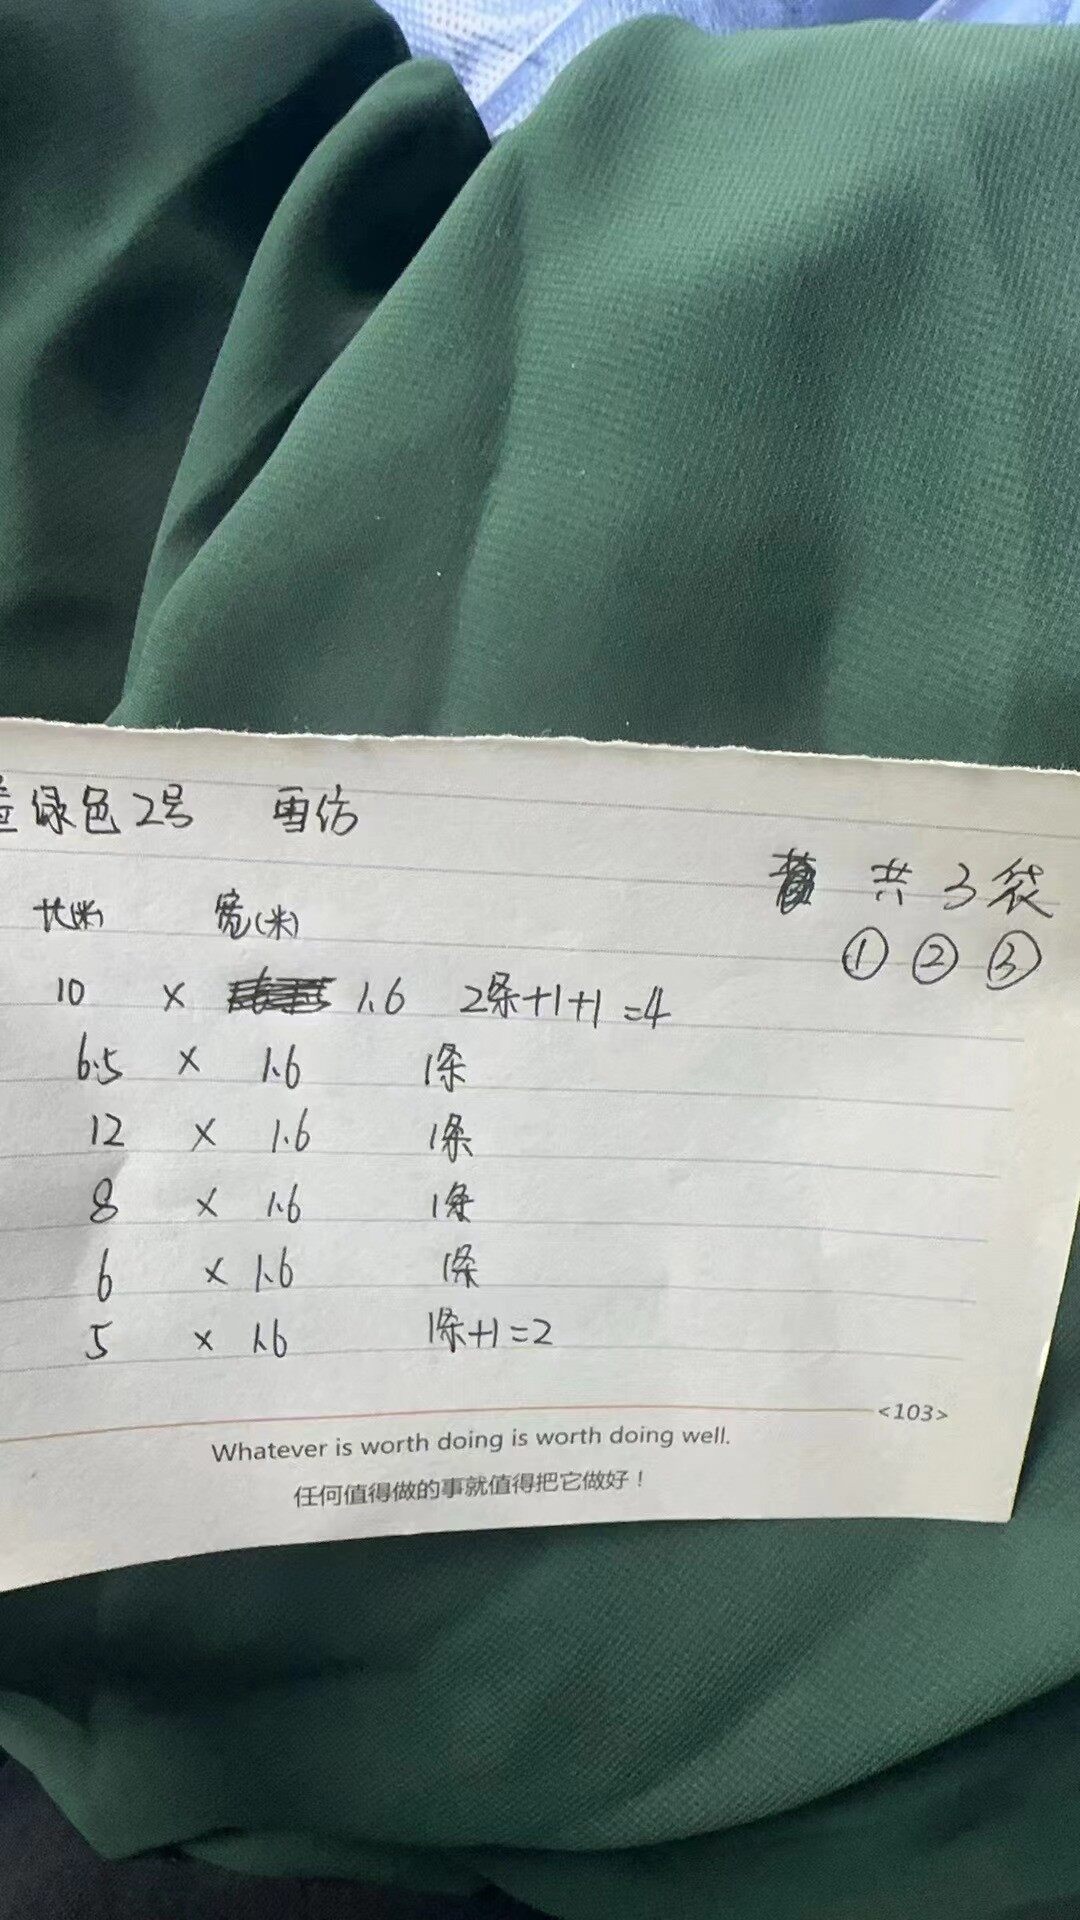 绿色2号 雪仿
共3袋
长(米) 宽(米)
① ② ③
10 × 1.6 2条+1+1=4
6.5 × 1.6 1条
12 × 1.6 1条
8 × 1.6 1条
6 × 1.6 1条
5 × 1.6 1条+1=2
<103>
Whatever is worth doing is worth doing well.
任何值得做的事就值得把它做好！